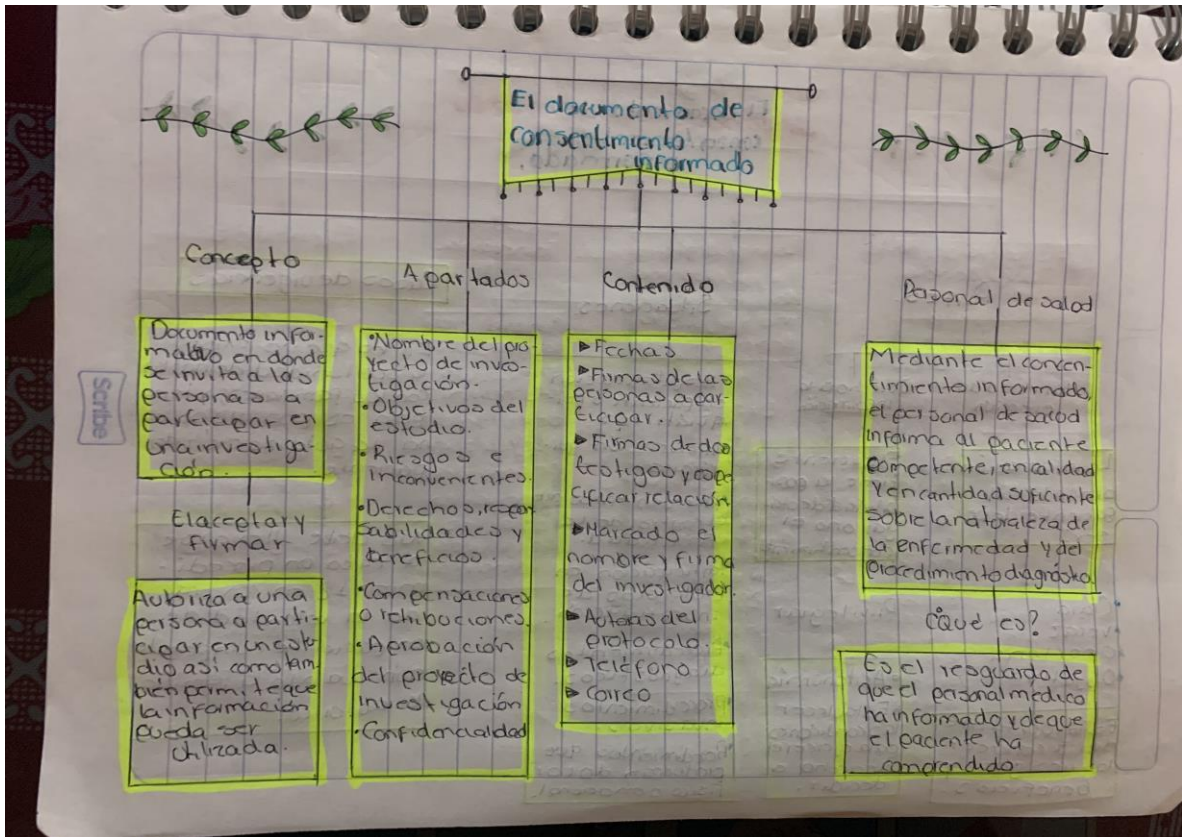 El documento de
consentimiento
informado
Concepto
Documento infor-
mativo en donde
se invita a las
personas a
participar en
una investiga-
ción.
El aceptar y
firmar
Autoriza a una
persona a parti-
cipar en un estu
dio así como tam
bién permite que
la información
pueda ser
utilizada.
Apartados
•Nombre del pro
yecto de inves-
tigación.
•Objetivos del
estudio.
•Riesgos e
inconvenientes.
•Derechos, respon
sabilidades y
beneficios.
•Compensaciones
o retribuciones.
•Aprobación
del proyecto de
investigación
•Confidencialidad
Contenido
▶Fechas
▶Firmas de las
personas a par-
ticipar.
▶Firmas de dos
testigos y espe
cificar relación
▶Marcado el
nombre y firma
del investigador.
▶ del
protocolo.
▶Teléfono
▶Correo
Personal de salud
Mediante el concen-
timiento informado,
el personal de salud
informa al paciente
competente, en calidad
y en cantidad suficiente
sobre la naturaleza de
la enfermedad y del
procedimiento
¿Qué es?
Es el resguardo de
que el personal médico
ha informado y de que
el paciente ha
comprendido
Scribe